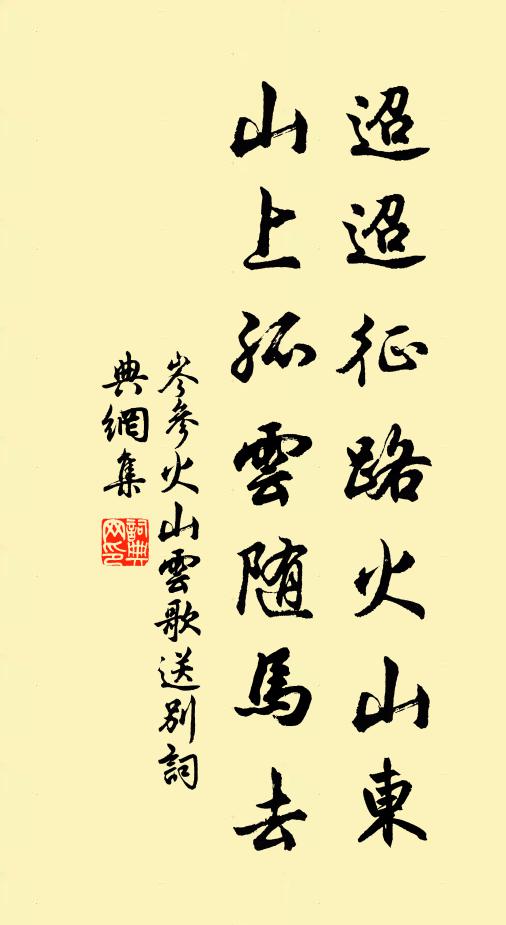 迢迢征路火山東
山上孤雲随馬去
岑參火山雲歌送別詞
典網集
詞典
网印